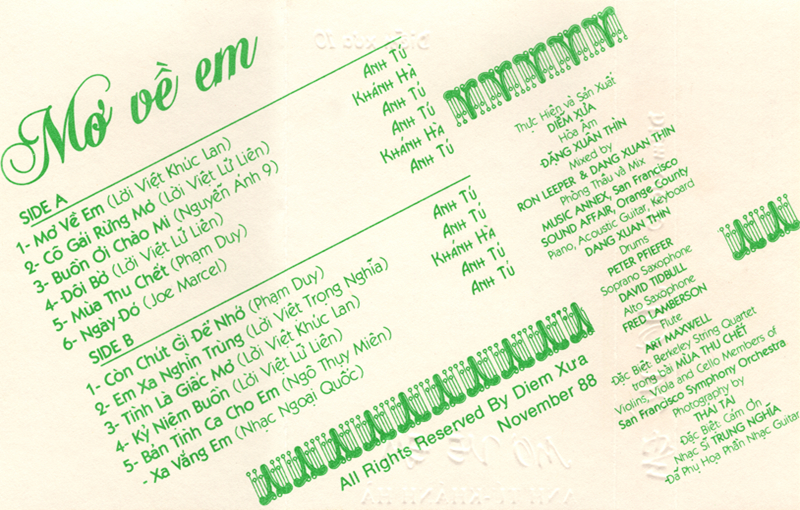 Mơ về em
SIDE A
1- Mơ Về Em (Lời Việt Khúc Lan) Anh Tú
2- Cô Gái Rừng Mơ (Lời Việt Lữ Liên) Khánh Hà
3- Buồn Ơi Chào Mi (Nguyễn Ánh 9) Anh Tú
4- Đôi Bờ (Lời Việt Lữ Liên) Anh Tú
5- Mùa Thu Chết (Phạm Duy) Khánh Hà
6- Ngày Đó (Joe Marcel) Anh Tú
SIDE B
1- Còn Chút Gì Để Nhớ (Phạm Duy) Anh Tú
2- Em Xa Nghìn Trùng (Lời Việt Trọng Nghĩa) Anh Tú
3- Tình Là Giấc Mơ (Lời Việt Khúc Lan) Khánh Hà
4- Kỷ Niệm Buồn (Lời Việt Lữ Liên) Anh Tú
5- Bản Tình Ca Cho Em (Ngô Thụy Miên) Anh Tú
- Xa Vắng Em (Nhạc Ngoại Quốc)
All Rights Reserved By Diem Xưa
November 88
Thực Hiện và Sản Xuất
DIỄM XƯA
Hòa Âm
ĐĂNG XUÂN THÌN
Mixed by
RON LEEPER & DANG XUAN THIN
Phòng Thâu và Mix
MUSIC ANNEX, San Francisco
SOUND AFFAIR, Orange County
Piano, Acoustic Guitar, Keyboard
DANG XUAN THIN
Drums
PETER PFIEFER
Soprano Saxophone
DAVID TIDBULL
Alto Saxophone
FRED LAMBERSON
Flute
ART MAXWELL
-Đặc Biệt: Berkeley String Quartet
trong bài MÙA THU CHẾT
Violins, Viola and Cello Members of
San Francisco Symphony Orchestra
Photography by
THÁI TÀI
Đặc Biệt Cám Ơn
Nhạc Sĩ TRUNG NGHĨA
-Đã Phụ Họa Phần Nhạc Guitar